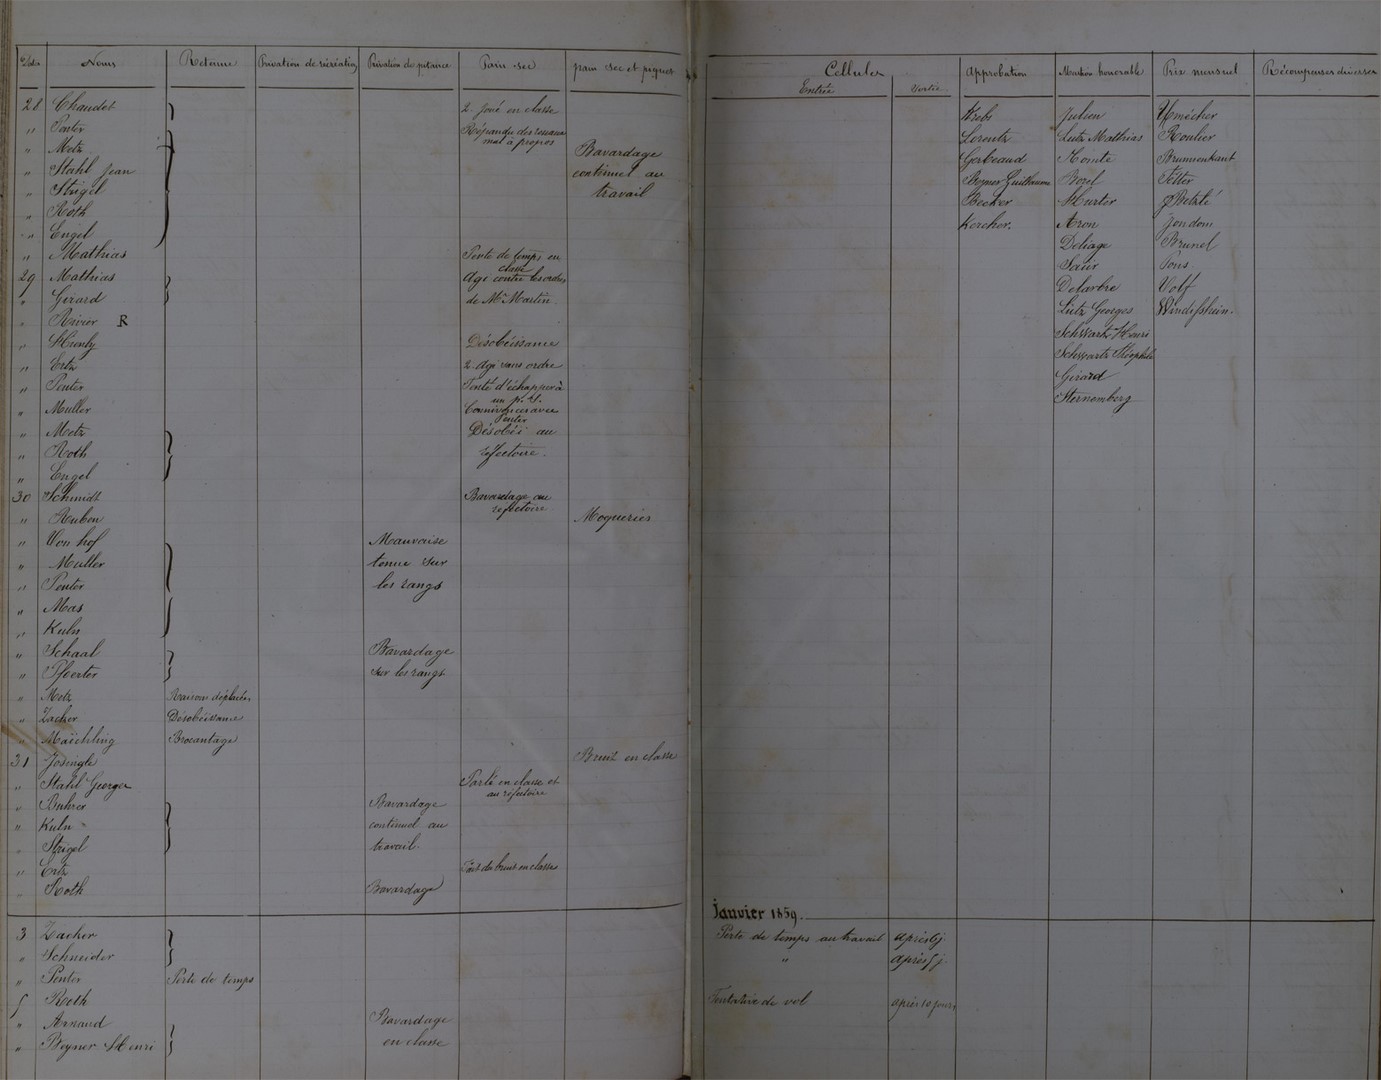 Dates Noms Retenue Privation de récréation Privation de pitance Pain sec pain sec et piquet
28 Chaudet 2. Joué en classe
" Penter Répandu des
mal à propos
" Metz Bavardage
" Stahl Jean continuel au
" Strigel travail
" Roth
" Engel
" Matthias Perte de temps en
classe
29 Mathias Agi contre les ordres
" Girard de Mr Martin.
" Rivier R
" Désobéissance
" Ertz 2. Agi sans ordre
" Penter Tenté d'échapper à
un p. s.
" Muller Connivence avec
Penter
" Metz Désobéi au
" Roth réfectoire.
" Engel
30 Schmidt Bavardage au
réfectoire
" Ruben Moqueries
" Von hof Mauvaise
" Muller tenue sur
" Penter les rangs
" Mas
" Kuhn
" Schaal Bavardage
" Pfoerter sur les rangs
" Metz Raison déplacée
" Zacher Désobéissance
" Maëchling Brocantage
31 Josingle Bruit en classe
" Stahl George Parlé en classe et
au réfectoire
" Buhrer Bavardage
" Kuhn continuel au
" Strigel travail.
" Ertz Fait du bruit en classe
" Roth Bavardage
3 Zacher
" Schneider
" Penter Perte de temps
5 Roth
" Arnaud Bavardage
" Beyner Henri en classe
Cellules Approbation Mention honorable Prix mensuel Récompenses diverses
Entrée Sortie
Krebs Julien
Lorentz Lutz Mathias Roulier
Gerbeaud Comte Brunnenkant
Beyner Guillaume Borel Fetter
Becker Murter
Kercher. Aron Jendom
Deliage Brunel
Saür Pons.
Delarbre Volf
Lutz Georges
Schwartz Henri
Schwartz Théophile
Girard
Sternemberg
Janvier 1859.
Perte de temps au travail après 6 j.
" après 5 j.
Tentative de vol après 10 jours